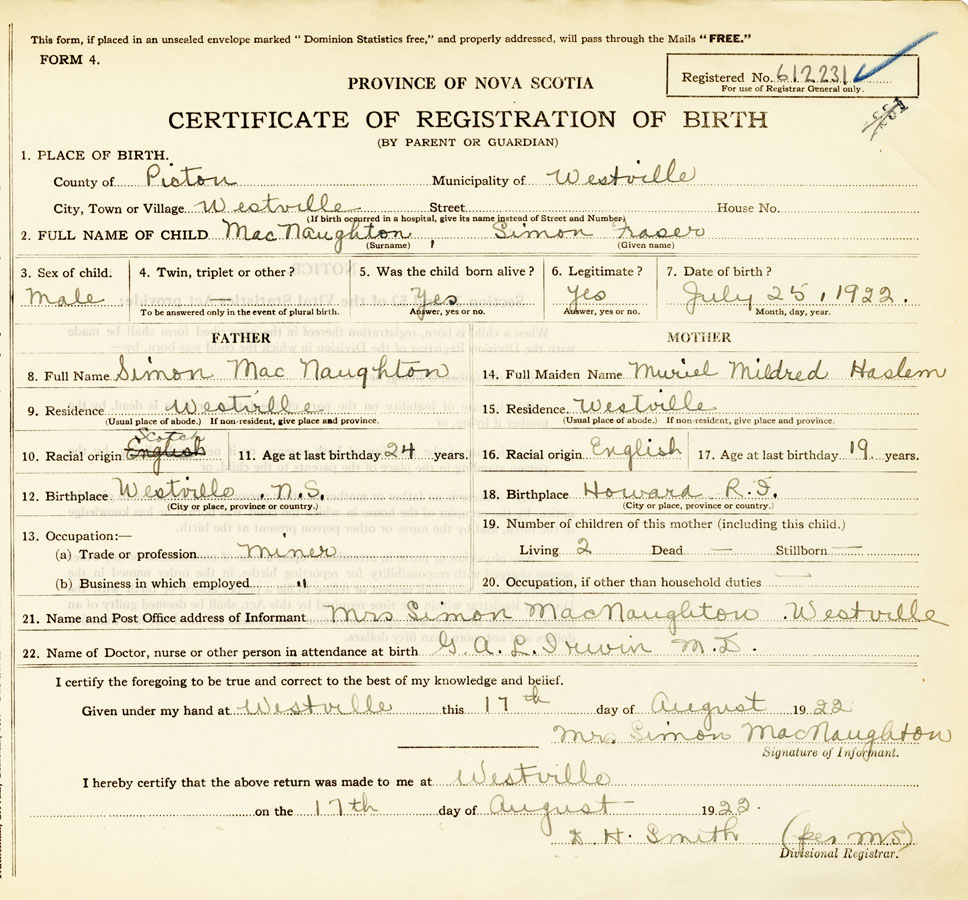 This form, if placed in an unsealed envelope marked "Dominion Statistics free," and properly addressed, will pass through the Mails "FREE."
FORM 4.
Registered No. 612231
For use of Registrar General only.
PROVINCE OF NOVA SCOTIA
CERTIFICATE OF REGISTRATION OF BIRTH
(BY PARENT OR GUARDIAN)
1. PLACE OF BIRTH.
County of Picton Municipality of Westville
City, Town or Village Westville Street House No.
(If birth occurred in a hospital, give its name instead of Street and Number)
2. FULL NAME OF CHILD MacNaughton, Simon Fraser
(Surname) (Given name)
3. Sex of child. 4. Twin, triplet or other? 5. Was the child born alive? 6. Legitimate? 7. Date of birth?
Male — Yes Yes July 25, 1922.
To be answered only in the event of plural birth. Answer, yes or no. Answer, yes or no. Month, day, year.
FATHER MOTHER
8. Full Name Simon Mac Naughton 14. Full Maiden Name Muriel Mildred Haslem
9. Residence Westville 15. Residence Westville
(Usual place of abode.) If non-resident, give place and province. (Usual place of abode.) If non-resident, give place and province.
Scotch
10. Racial origin English 11. Age at last birthday 24 years. 16. Racial origin English 17. Age at last birthday 19 years.
12. Birthplace Westville, N.S. 18. Birthplace Howard R.I.
(City or place, province or country.) (City or place, province or country.)
13. Occupation:— 19. Number of children of this mother (including this child.)
(a) Trade or profession Miner Living 2 Dead — Stillborn —
(b) Business in which employed " 20. Occupation, if other than household duties —
21. Name and Post Office address of Informant Mrs Simon MacNaughton Westville
22. Name of Doctor, nurse or other person in attendance at birth G. A. L. Irwin M.D.
I certify the foregoing to be true and correct to the best of my knowledge and belief.
Given under my hand at Westville this 17th day of August 1922
Mrs. Simon MacNaughton
Signature of Informant.
I hereby certify that the above return was made to me at Westville
on the 17th day of August 1922.
D. H. Smith (per M.S)
Divisional Registrar.